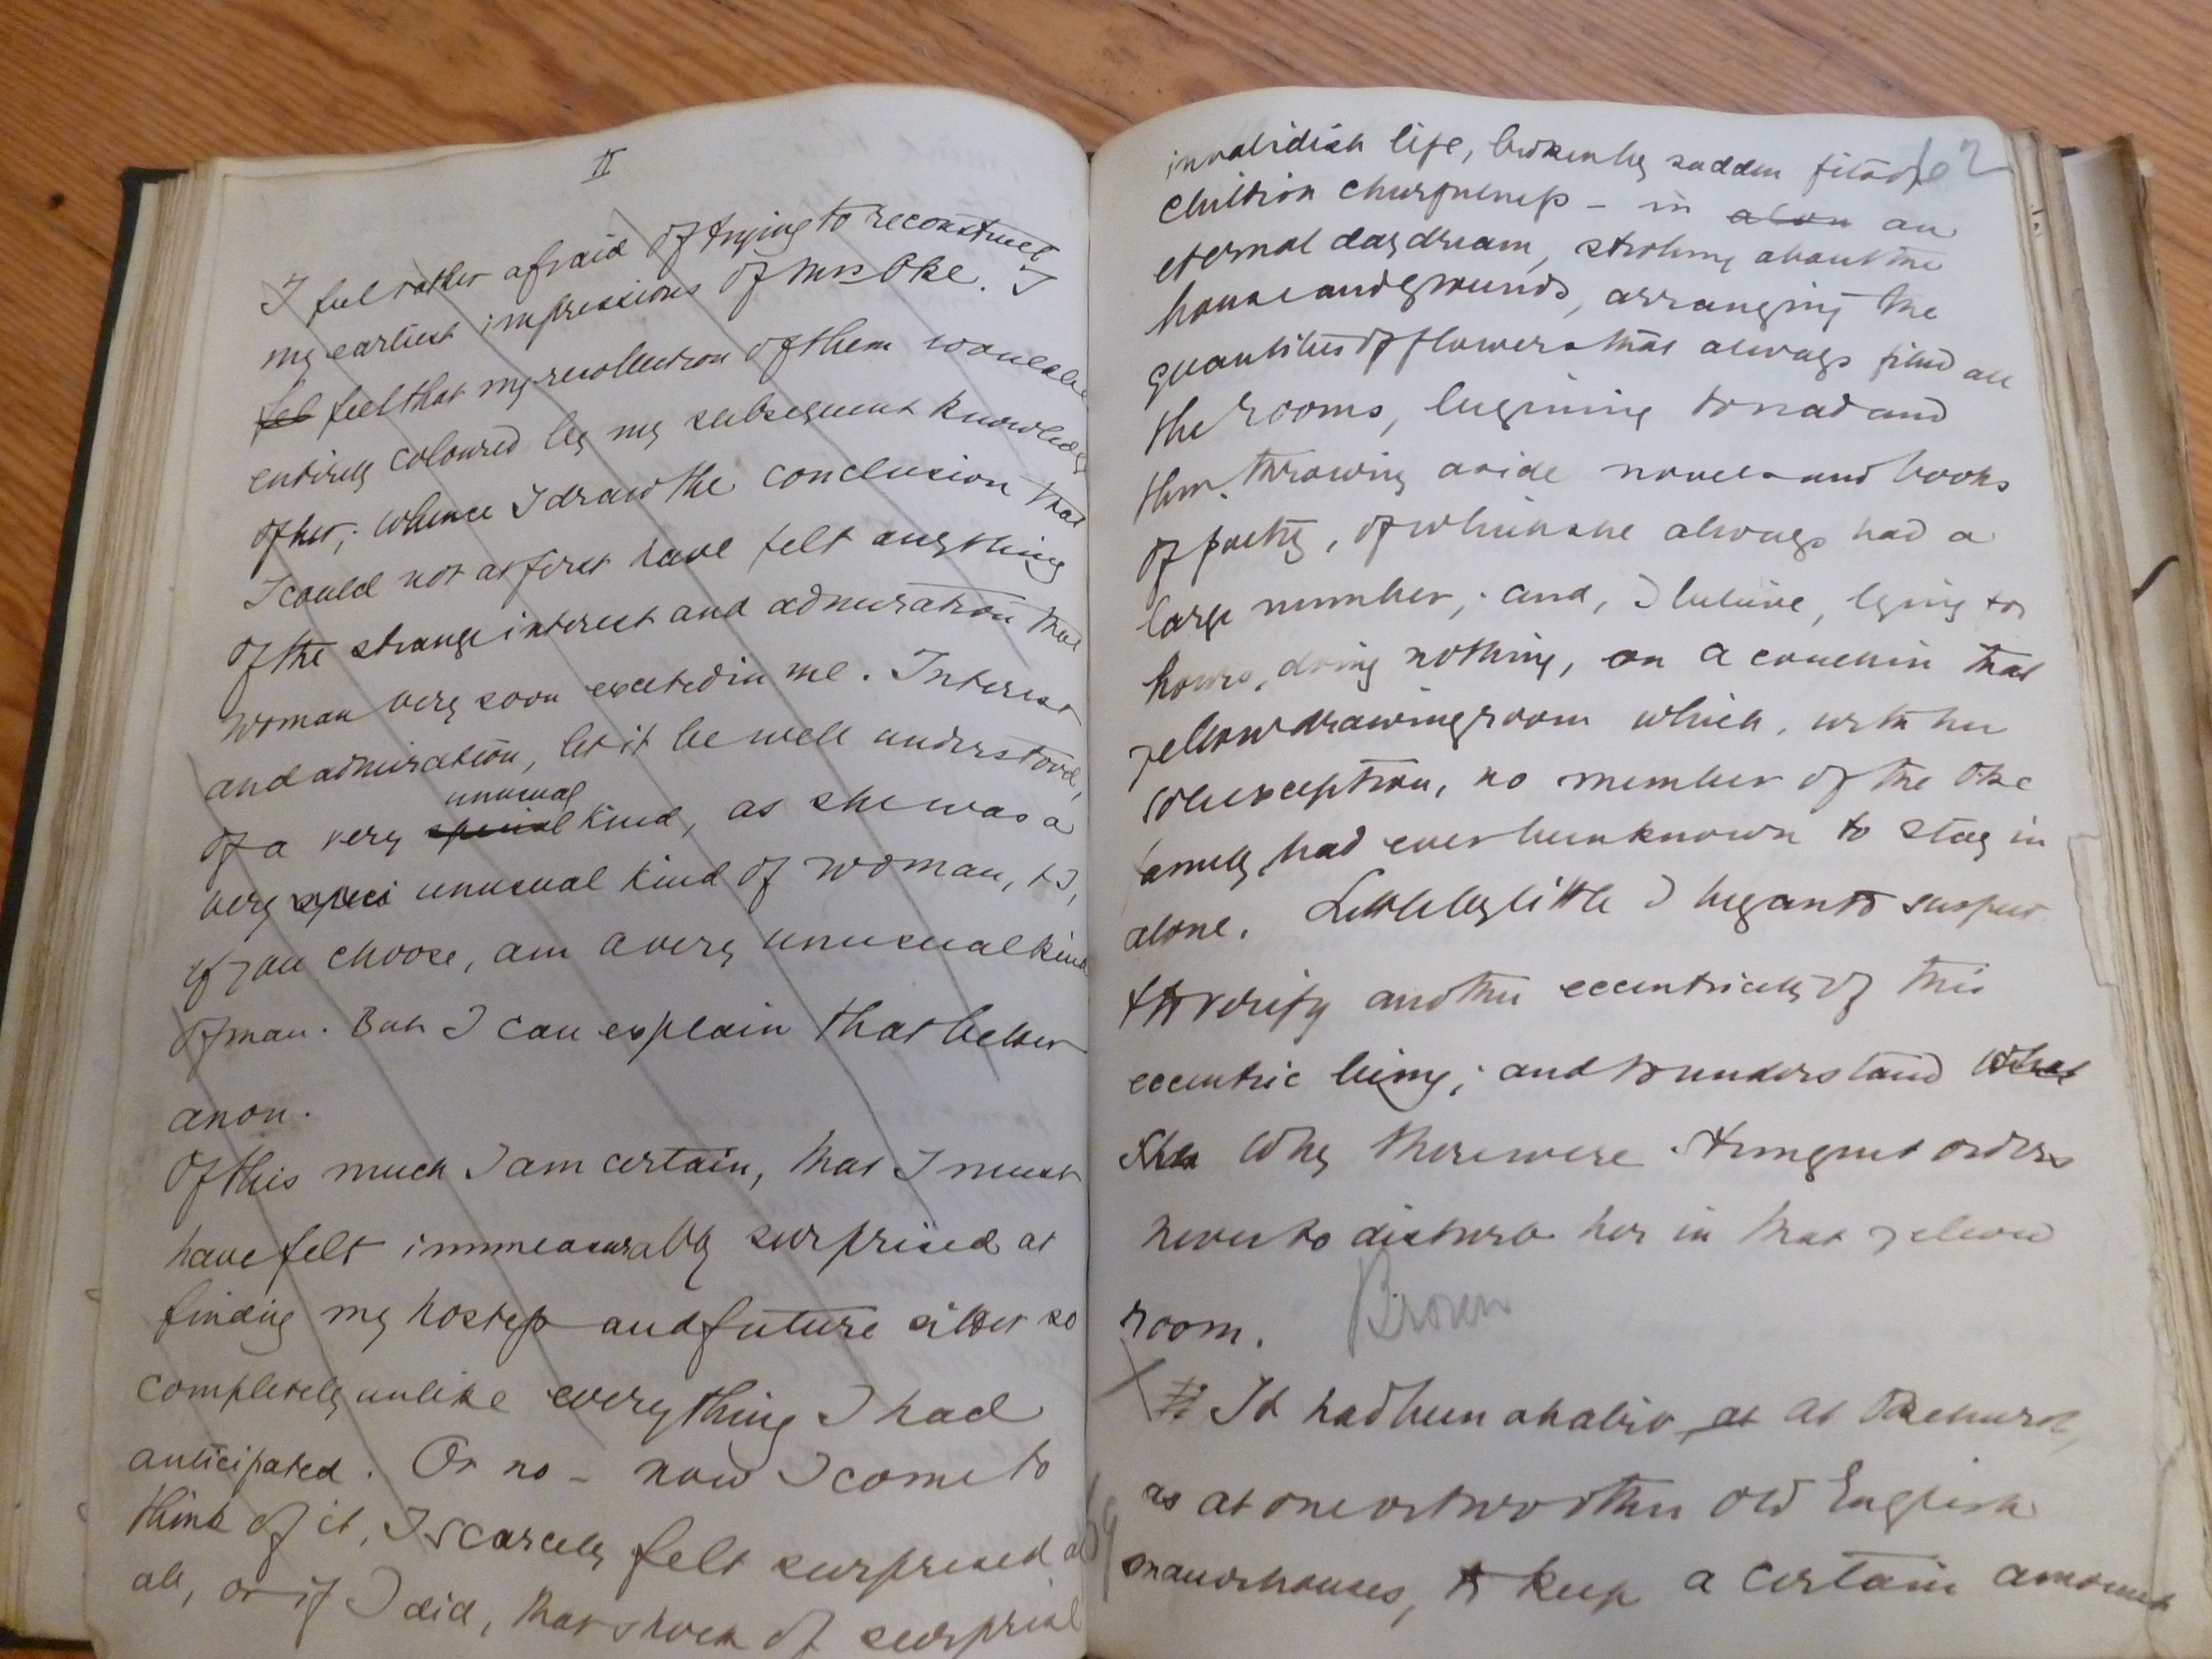 II
I feel rather afraid of trying to reconstruct
my earliest impressions of Mrs Oke. I
fel feel that my recollection of them would be
entirely coloured by my subsequent knowledge
of her; whence I draw the conclusion that
I could not at first have felt anything
of the strange interest and admiration that
woman very soon excited in me. Interest
and admiration, let it be well understood,
unusual
of a very special kind, as she was a
very speci unusual kind of woman, & I,
if you choose, am a very unusual kind
of man. But I can explain that better
anon.
Of this much I am certain, that I must
have felt immeasurably surprised at
finding my hostess and future sitter so
completely unlike everything I had
anticipated. Or no - now I come to
think of it, I scarcely felt surprised at
all, or if I did, that shock of surprise
62
invalidish life, broken by sudden fits of
childish cheerfulness - in an
eternal daydream, strolling about the
house and grounds, arranging the
quantities of flowers that always filled all
the rooms, beginning to read and
then throwing aside novels and books
of poetry, of which she always had a
large number; and, I believe, lying for
hours, doing nothing, on a couch in that
yellow drawing room which, with her
sole exception, no member of the Oke
family had ever been known to stay in
alone. Little by little I began to suspect
& to verify another eccentricity of this
eccentric being; and to understand what
she why there were stringent orders
never to disturb her in that yellow
room. Brown
It had been a habit at at Okehurst,
as at one or two other old English
manorhouses, to keep a certain amount